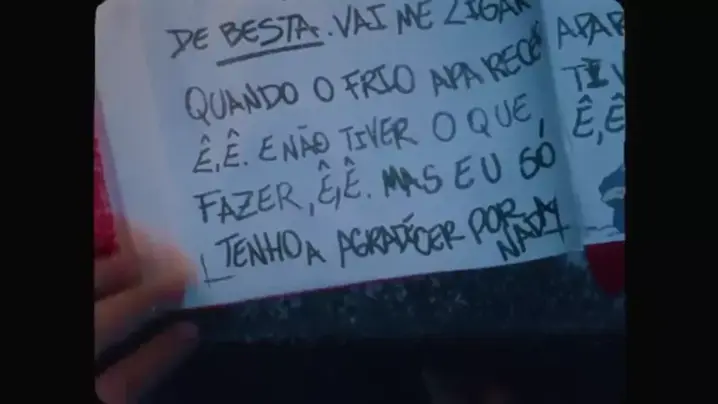 DE BESTA. VAI ME LIGAR
QUANDO O FRIO APARECER
Ê,Ê. E NÃO TIVER O QUE,
FAZER, Ê,Ê. MAS EU SÓ
TENHO A AGRADECER POR NADA
APAR
TIV
Ê,Ê